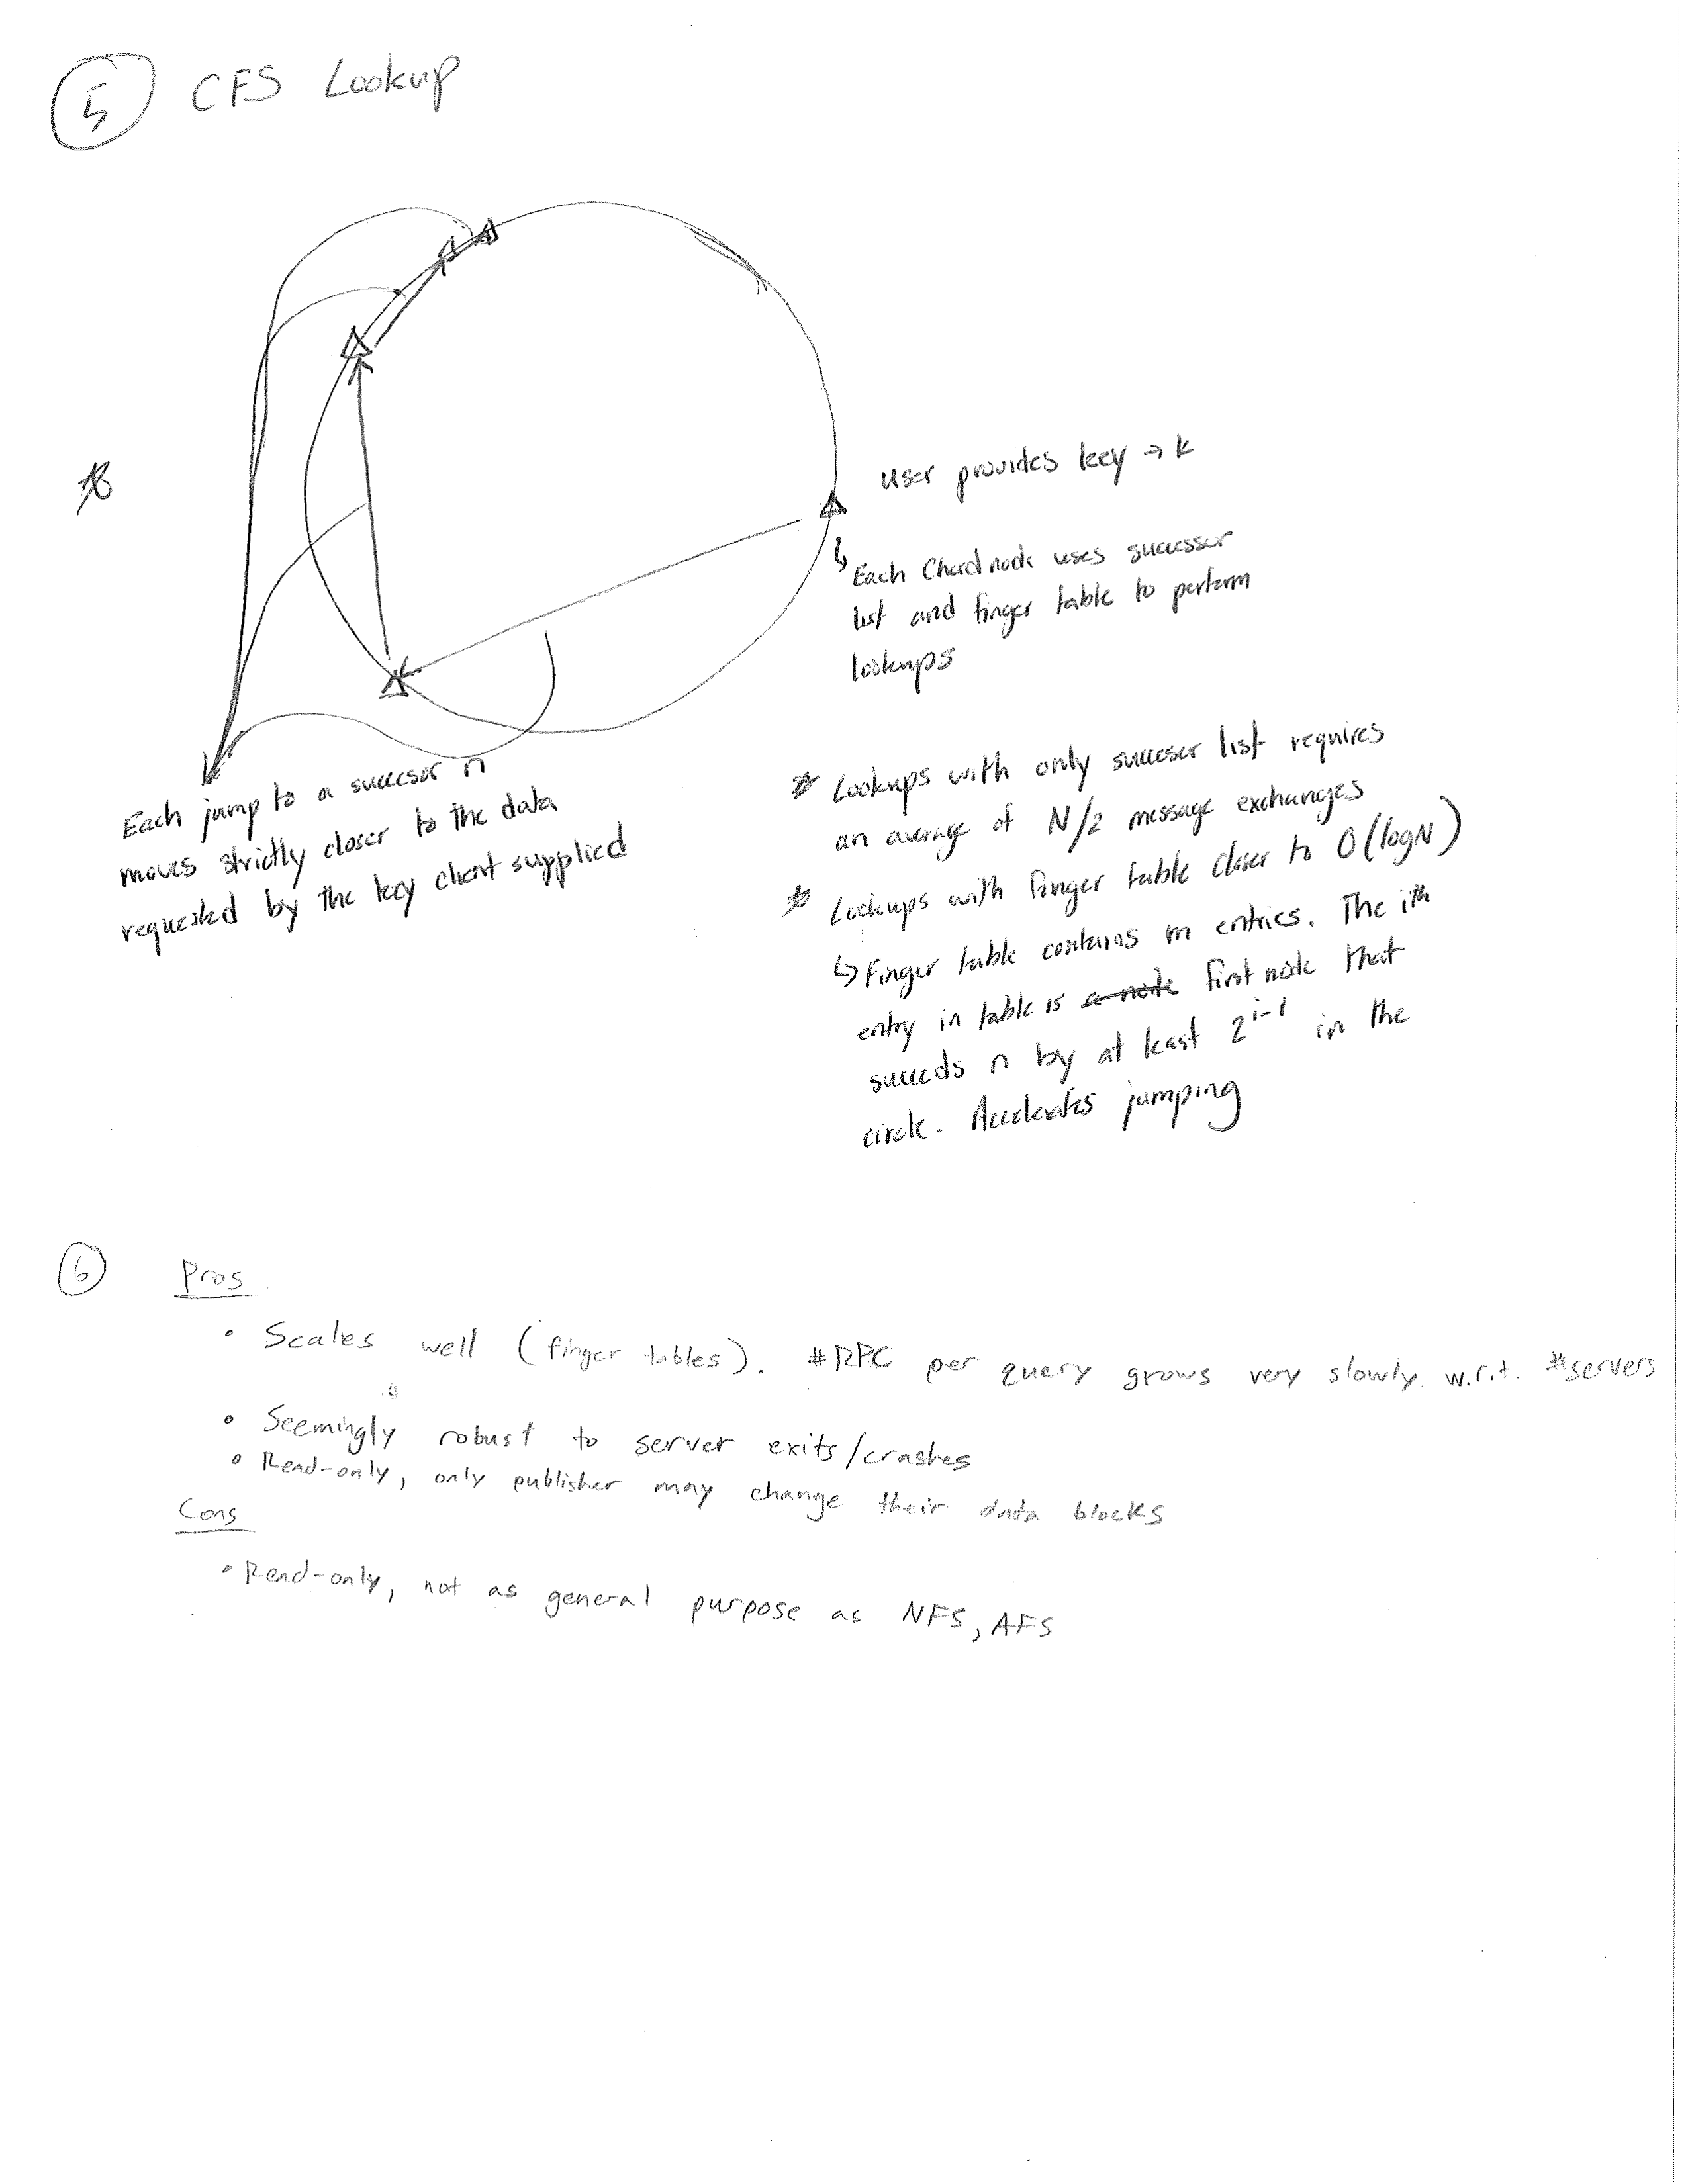 5 CFS Lookup
user provides key → k
↳ Each Chord node uses successor
list and finger table to perform
lookups
Each jump to a succesor n
moves strictly closer to the data
requested by the key client supplied
* Lookups with only succesor list requires
an average of N/2 message exchanges
* Lookups with finger table closer to O(logN)
↳ Finger table contains m entries. The ith
entry in table is a node first node that
succeds n by at least 2^i-1 in the
circle. Accelerates jumping
6 Pros
• Scales well (finger tables). #RPC per query grows very slowly. w.r.t. #servers
• Seemingly robust to server exits/crashes
• Read-only, only publisher may change their data blocks
Cons
• Read-only, not as general purpose as NFS, AFS